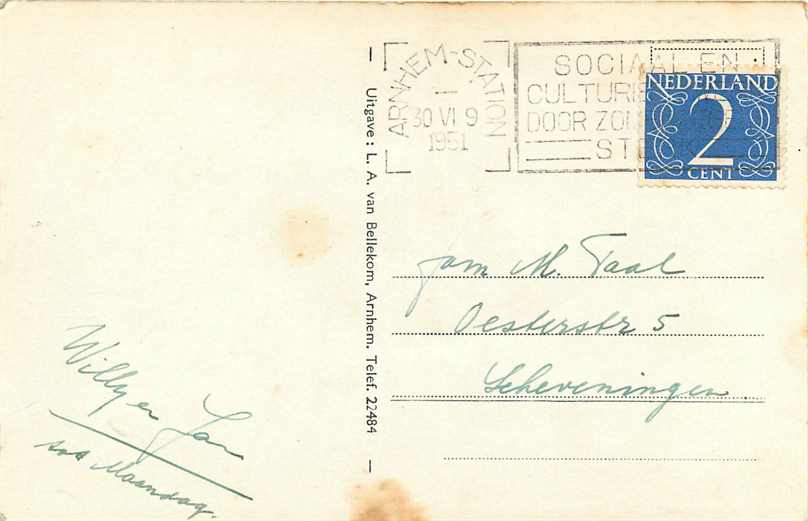 ARNHEM-STATION
30 VI 9
1951
SOCIAAL EN
CULTURE
DOOR ZO
ST
NEDERLAND
2
CENT
Uitgave: L. A. van Bellekom, Arnhem. Telef. 22484
fam M. Taal
Oesterstr 5
Scheveningen
Willy en Jan
tot Maandag.